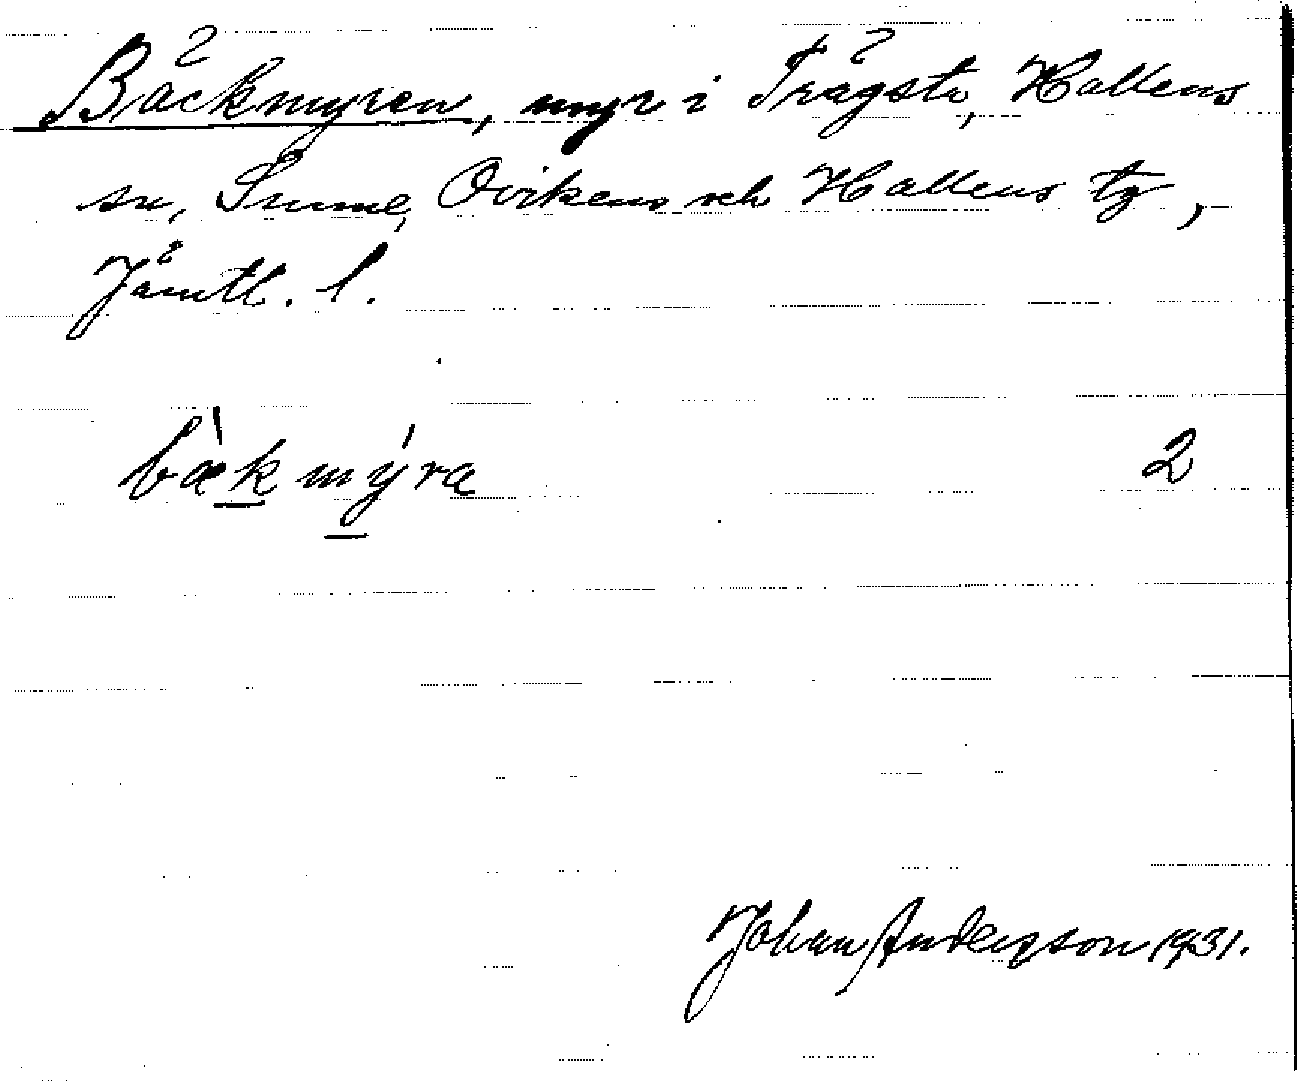 Bäckmyren, myr i Trägsta, Hallens
sn, Sunne, Ovikens och Hallens tg,
Jämtl. l.
bæ̀kmýra 2
Johan Anderson 1931.